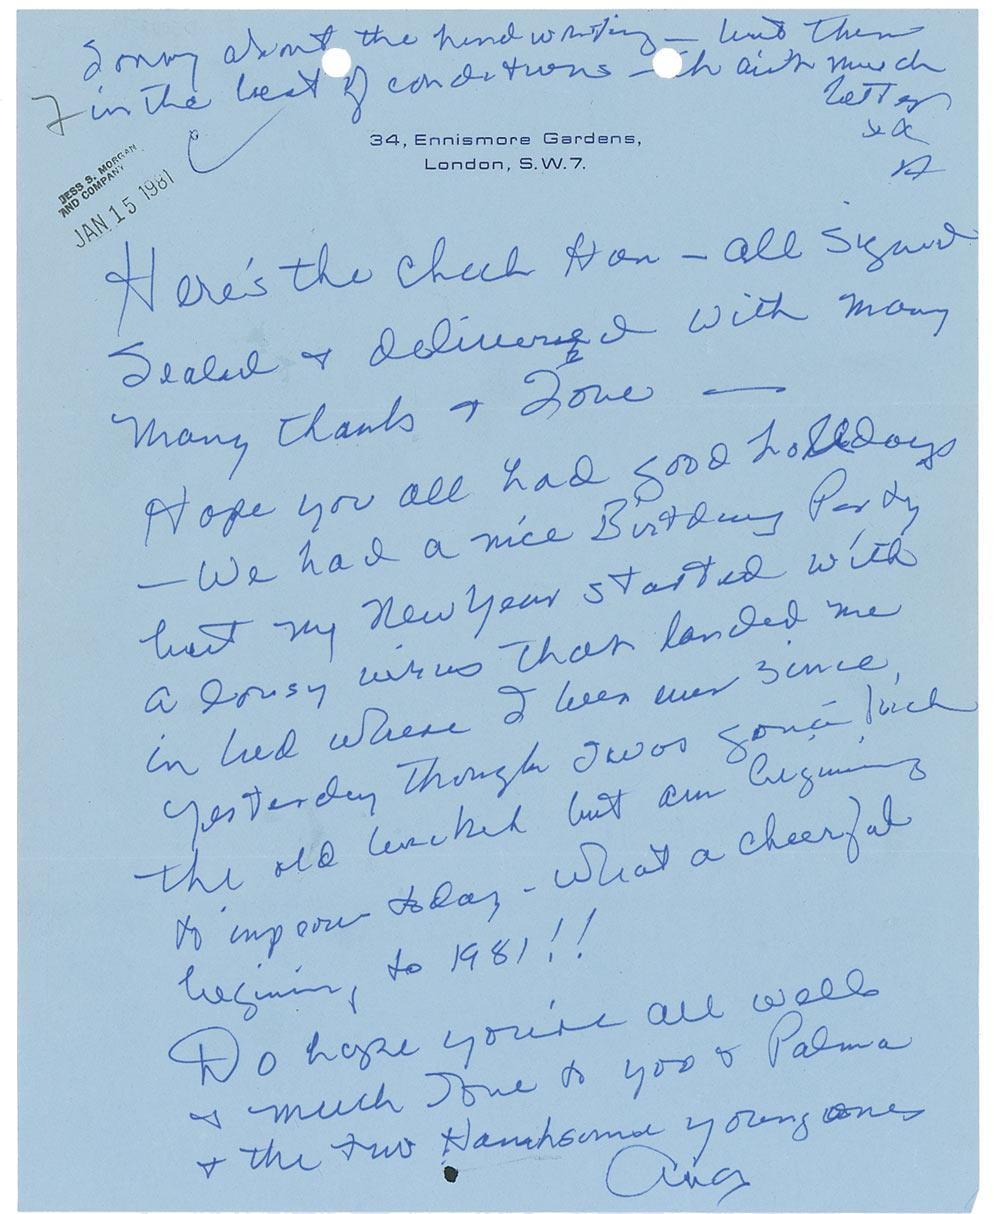 Sorry about the handwriting — but then
in the best of conditions — it ain't much
better
xx
A
34, Ennismore Gardens,
London, S.W.7.
JESS S. MORGAN
AND COMPANY
JAN 15 1981
Here's the check Hon — all signed
Sealed & delivered with many
many thanks & Love —
Hope you all had good holidays
— We had a nice Birthday Party
but my New Year started with
a lousy virus that landed me
in bed where I been ever since
yesterday though I was gonna kick
the old bucket but am begining
to improve today - What a cheerful
begining to 1981!!
Do hope you're all well
& much Love to you & Palma
& the two Handsome young ones
Ava